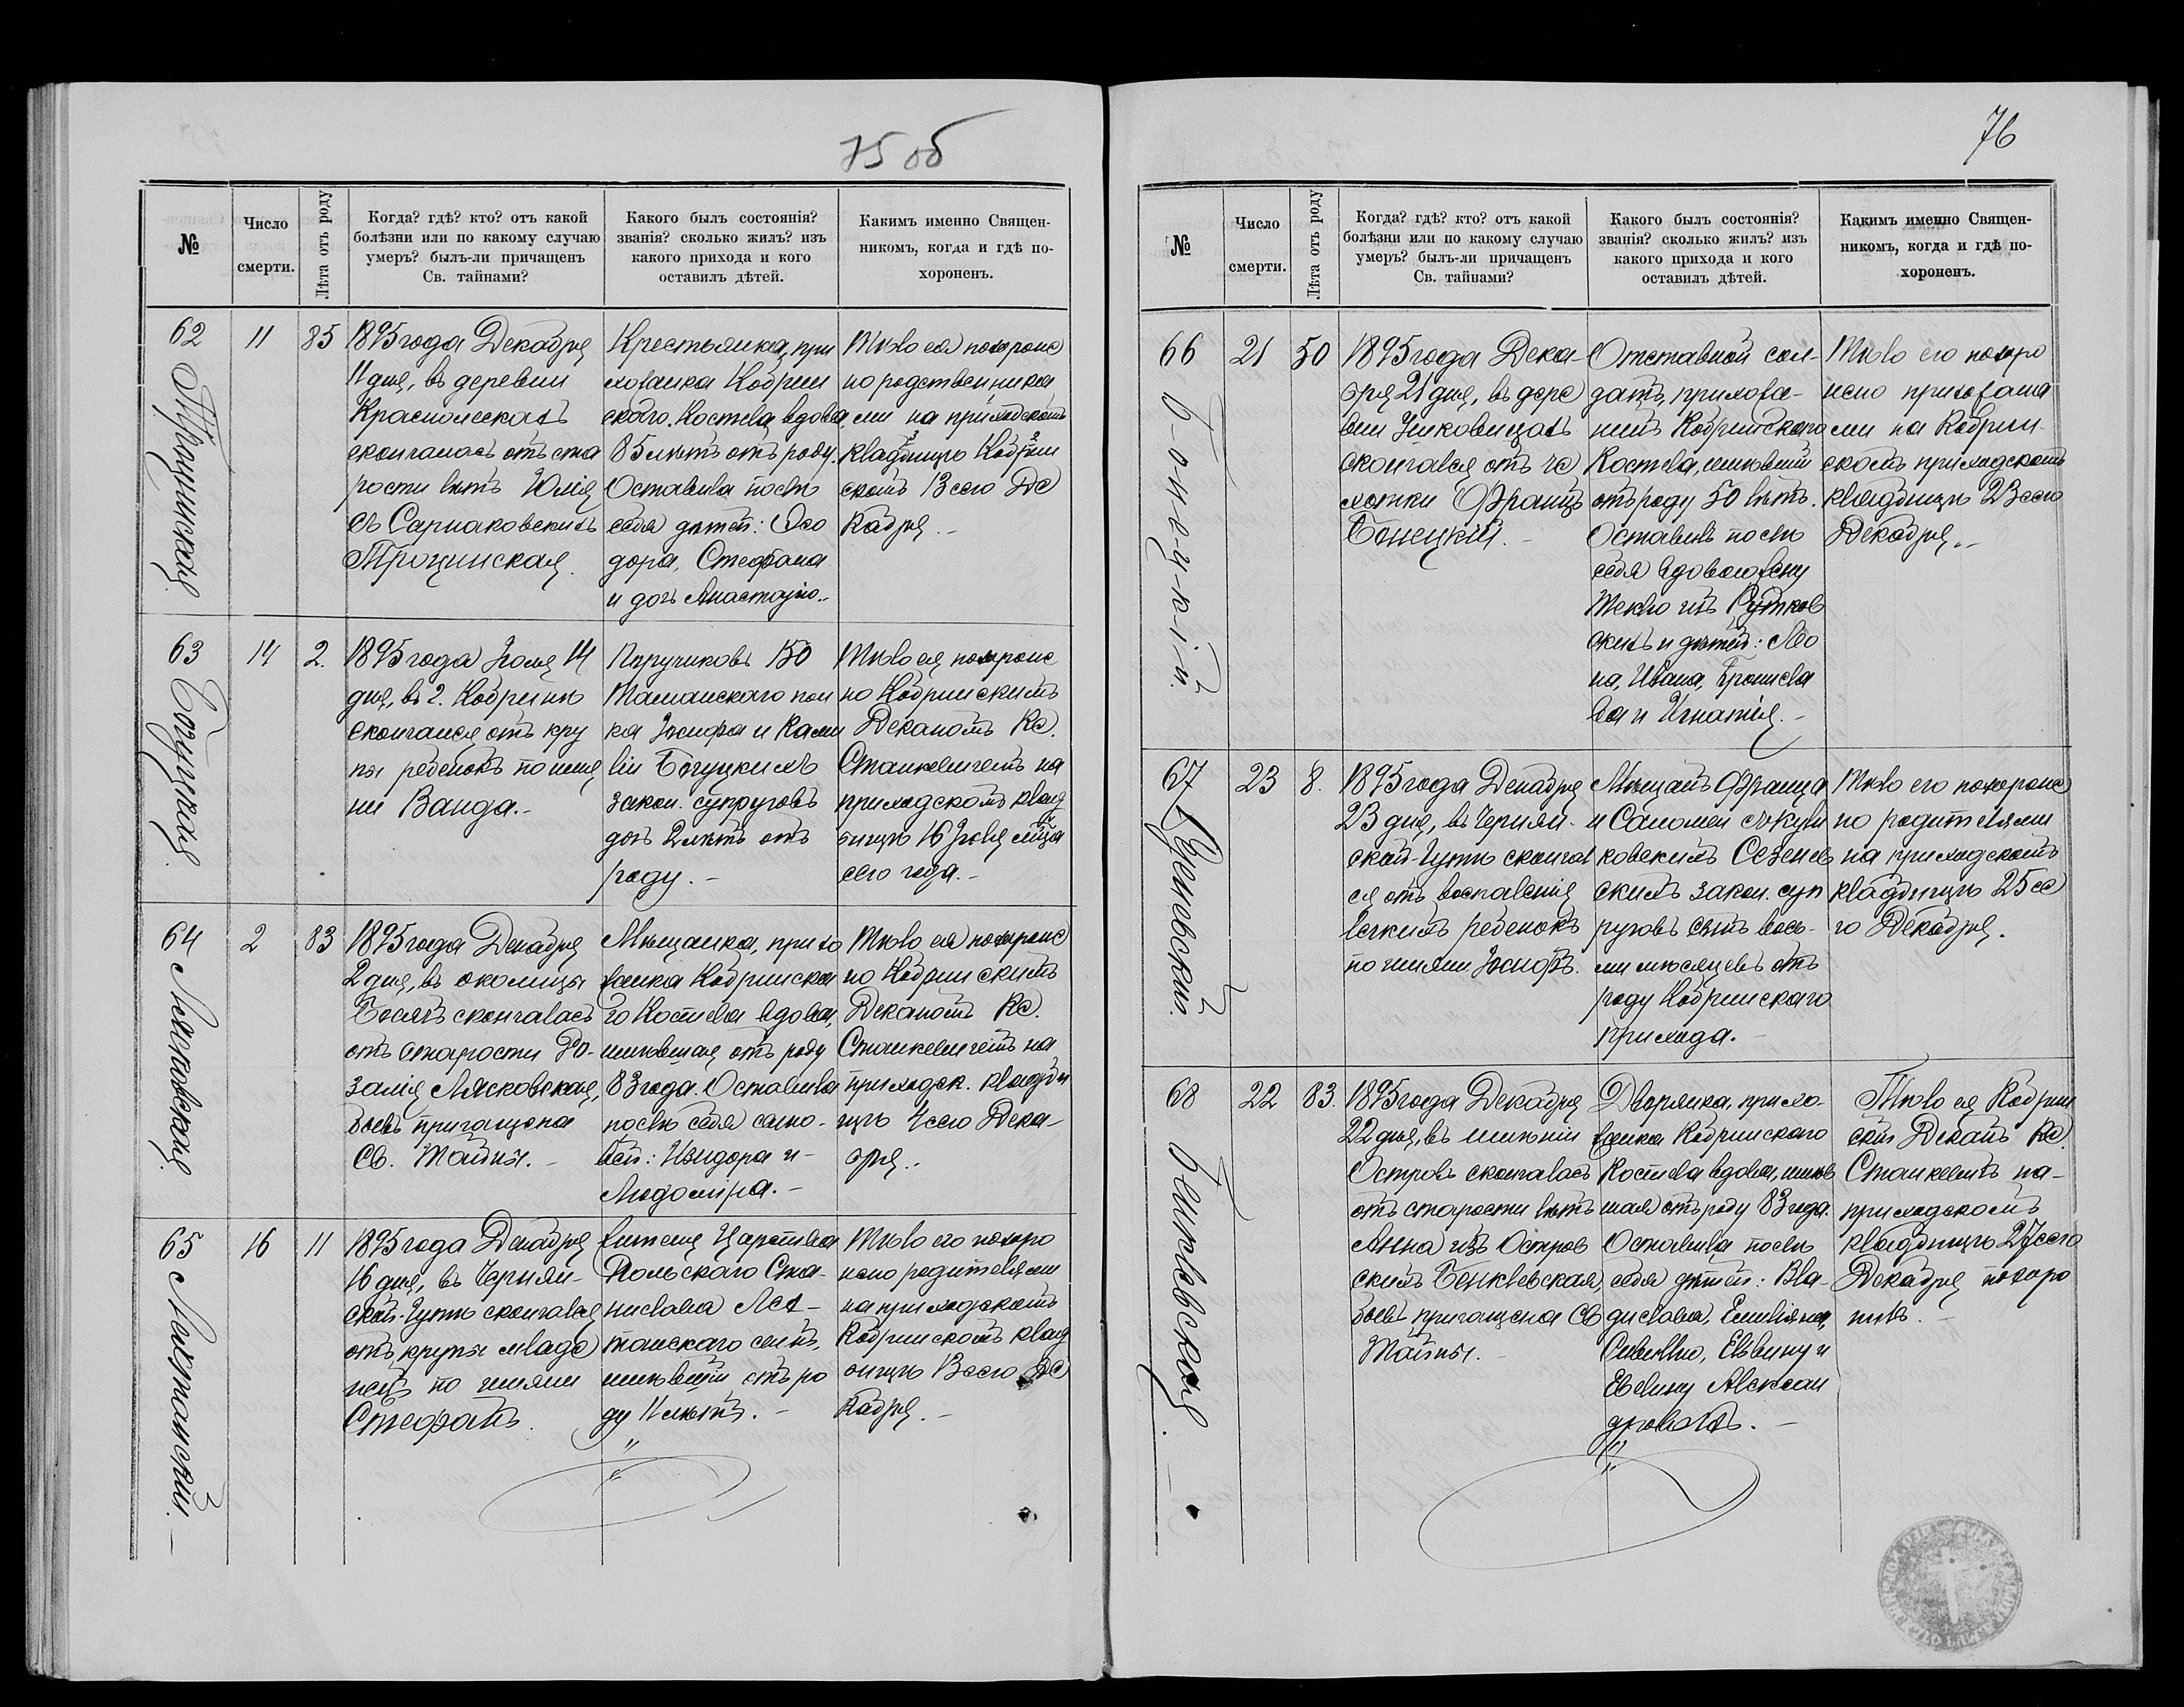 75 об
№
Число
смерти.
Лѣта отъ роду
Когда? гдѣ? кто? отъ какой
болѣзни или по какому случаю
умеръ? былъ-ли причащенъ
Св. тайнами?
Какого былъ состоянія?
званія? сколько жилъ? изъ
какого прихода и кого
оставилъ дѣтей.
Какимъ именно Священ-
никомъ, когда и гдѣ по-
хороненъ.
62
Троцинская
11
85
1895 года Декабря
11 дня, въ деревни
Краснолескахъ
скончалась отъ ста
рости лѣтъ Юлія
съ Сарнаковскихъ
Троцинская.
Крестьянка, при
хожанка Кобрин
скаго Костела, вдова,
85 лѣтъ отъ роду.
Оставила послѣ
себя дѣтей: Ѳео
дора, Стефана
и дочь Анастазію..
Тѣло ея похороне
но родственника
ми на приходскомъ
кладбищѣ Кобрин
скомъ 13 сего Де
кабря. -
63
Богуцкая
14
2.
1895 года Іюля 14
дня, въ г. Кобринѣ
скончался отъ кру
пы ребенокъ по име
ни Ванда. -
Поручиковъ 150
Таманскаго пол
ка Іосифа и Ками
ліи Богуцкихъ
закон. супруговъ
дочь 2 лѣтъ отъ
роду. -
Тѣло ея похороне
но Кобринскимъ
Деканомъ Кс.
Станкевичемъ на
приходскомъ клад
бищѣ 16 Іюля мѣца
сего года. -
64
Лясковская
2
83
1895 года Декабря
2 дня, въ околицы
скончалась
отъ старости Ро-
залія Лясковская,
бывъ причащена
Св. Тайны. -
Мѣщанка, прихо
жанка Кобринска
го Костела вдова,
имѣвшая отъ роду
83 года. Оставила
послѣ себя сыно-
вей: Изидора и
Людоміра. -
Тѣло ея похороне
но Кобринскимъ
Деканомъ Кс.
Станкевичемъ на
приходск. кладби
щѣ 4 сего Дека-
бря..
65
16
11
1895 года Декабря
16 дня, въ Черняи-
ской-Гутѣ скончался
отъ крупы младе
нецъ по имени
Стефанъ.
Жителя Царства
Польскаго Ста-
нислава
сынъ,
имѣвшій отъ ро
ду 11 лѣтъ. -
Тѣло его похоро
нено родителями
на приходскомъ
Кобринскомъ клад
бищѣ 18 сего Де
кабря. -
76
№
Число
смерти.
Лѣта отъ роду
Когда? гдѣ? кто? отъ какой
болѣзни или по какому случаю
умеръ? былъ-ли причащенъ
Св. тайнами?
Какого былъ состоянія?
званія? сколько жилъ? изъ
какого прихода и кого
оставилъ дѣтей.
Какимъ именно Священ-
никомъ, когда и гдѣ по-
хороненъ.
66
Бонецкій.
21
50
1895 года Дека-
бря 21 дня, въ дере
вни
скончался отъ ча
хотки Францъ
Бонецкій. -
Отставной сол-
датъ, прихожа-
нинъ Кобринскаго
Костела, имѣвшій
отъ роду 50 лѣтъ.
Оставивъ послѣ
себя вдовою жену
Теклю изъ Рутков
скихъ и дѣтей: Лео
на, Ивана, Бронисла
ва и Игнатія. -
Тѣло его похоро
нено прихожана
ми на Кобрин-
скомъ приходскомъ
кладбищѣ 23 сего
Декабря..
67
Сезеневскій.
23
8.
1895 года Декабря
23 дня, въ Черняи-
ской-Гутѣ сконча
ся отъ воспаленія
легкихъ ребенокъ
по имяни Іосифъ.
Мѣщанъ Франца
и Саломеи
Сезенев
скихъ закон. суп
руговъ сынъ вось-
ми мѣсяцевъ отъ
роду Кобринскаго
прихода. -
Тѣло его похороне
но родителями
на приходскомъ
кладбищѣ 25 се
го Декабря.
68
Бенклевская.
22
83.
1895 года Декабря
22 дня, въ имѣніи
Островъ скончалась
отъ старости лѣтъ
Анна изъ Остров
скихъ Бенклевская,
бывъ причащена Св
Тайны. -
Дворянка, прихо-
жанка Кобринскаго
Костела вдова, имѣв
шая отъ роду 83 года.
Оставила послѣ
себя дѣтей: Вла-
дислава, Емиліяна,
Сивиллю, Ельвину и
Евелину Алексан
дровыхъ. -
Тѣло ея Кобрин
скій Деканъ Кс.
Станкевичъ на-
приходскомъ
кладбищѣ 27 сего
Декабря похоро
нилъ. -